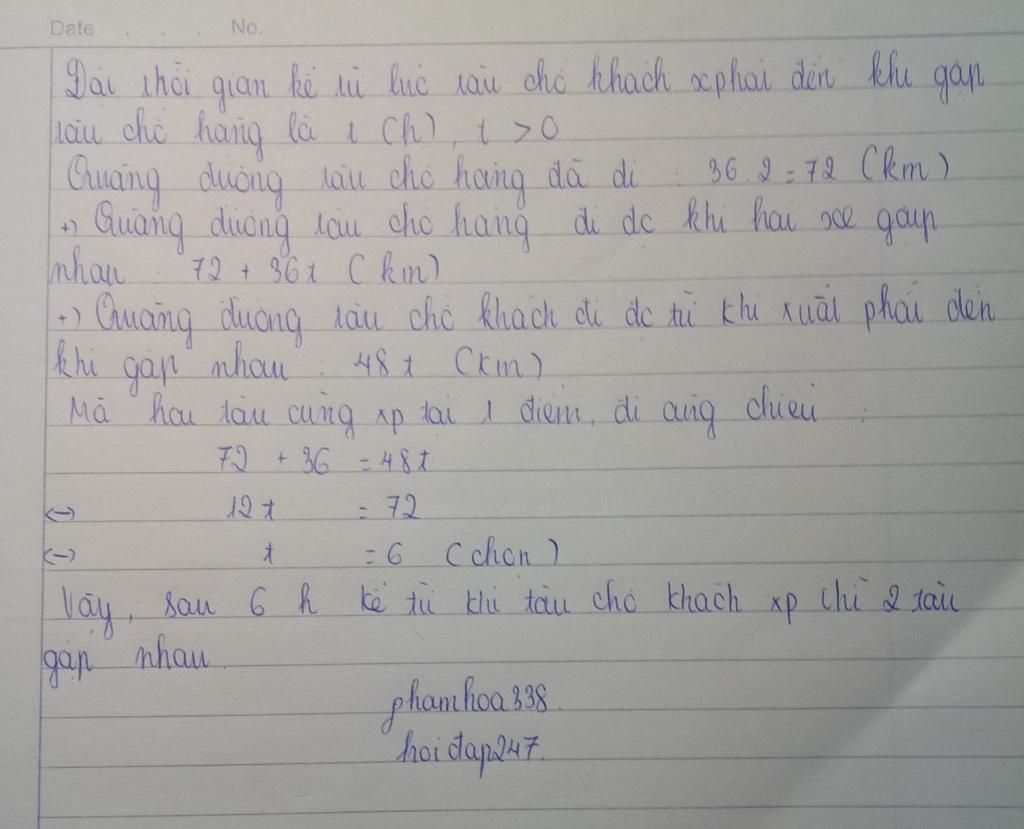 Date . . . No.
Đặt thời gian kể từ lúc tàu chở khách xphát đến khi gặp
tàu chở hàng là t (h), t > 0
Quãng đường tàu chở hàng đã đi : 36.2 = 72 (km)
+) Quãng đường tàu chở hàng đi dc khi hai xe gặp
nhau : 72 + 36t (km)
+) Quãng đường tàu chở khách đi dc từ khi xuất phát đến
khi gặp nhau : 48t (km)
Mà hai tàu cùng xp tại 1 điểm, đi cùng chiều :
72 + 36 = 48t
<-> 12t = 72
<-> t = 6 (chọn)
Vậy, sau 6 h kể từ khi tàu chở khách xp thì 2 tàu
gặp nhau.
phamhoa338.
hoidap247.